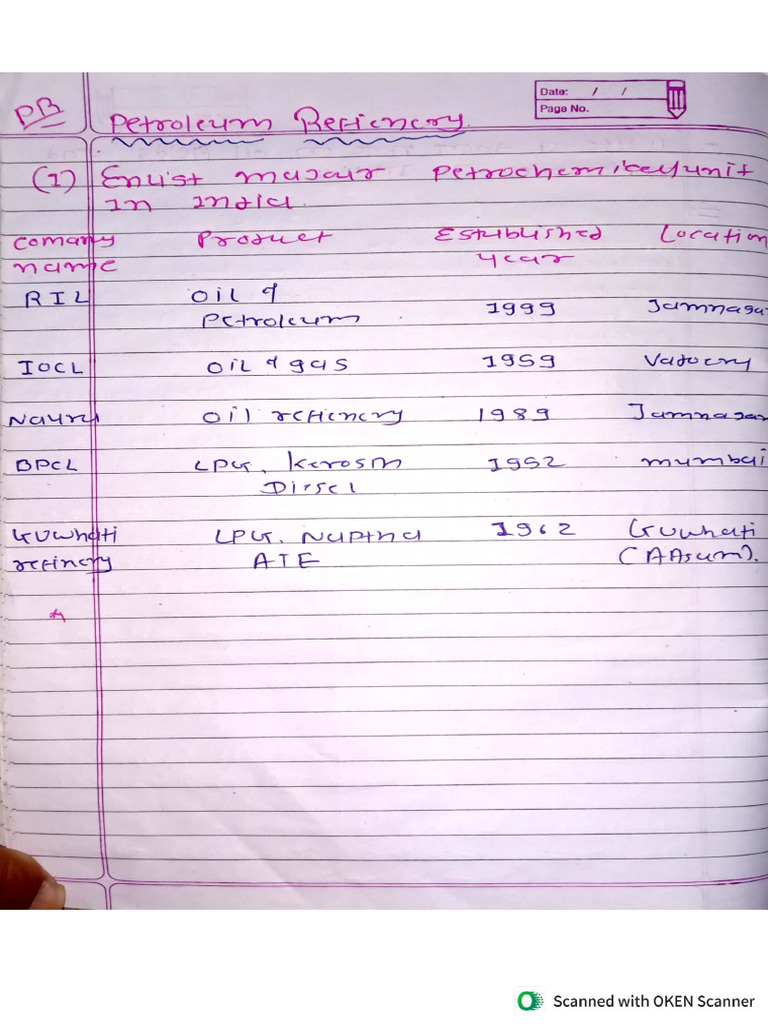 PB
Date: / /
Page No.
Petroleum Refienery
(1) Enlist majaur Petrochemical unit
in India.
comany Product Established Location
name year
RIL Oil & 1999 Jamnaga
Petroleum
IOCL Oil & gas 1959
Nayra Oil refienery 1989 Jamnagar
BPCL LPG, Kerosin 1952 mumbai
Diesel
Guwhati LPG. Naptha 1962 Guwhati
refinery ATE (AAsum).
Scanned with OKEN Scanner